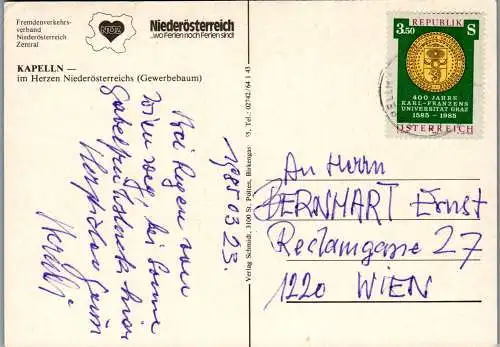 Fremdenverkehrs-
verband
Niederösterreich
Zentral
NÖZ
Niederösterreich
...wo Ferien noch Ferien sind!
KAPELLN —
im Herzen Niederösterreichs (Gewerbebaum)
1985 03 23.
Bei Regen von
Wien weg, bei Sonne
Gabelfrühstück hier
Herzlichen Gruß
Verlag Schmidt, 3100 St. Pölten, Birkengasse 75, Tel.: 02742/64 1 43
REPUBLIK
3.50 S
400 JAHRE
KARL-FRANZENS
UNIVERSITÄT GRAZ
1585 - 1985
ÖSTERREICH
An Herrn
BERNMART Ernst
Reclamgasse 27
1220 WIEN